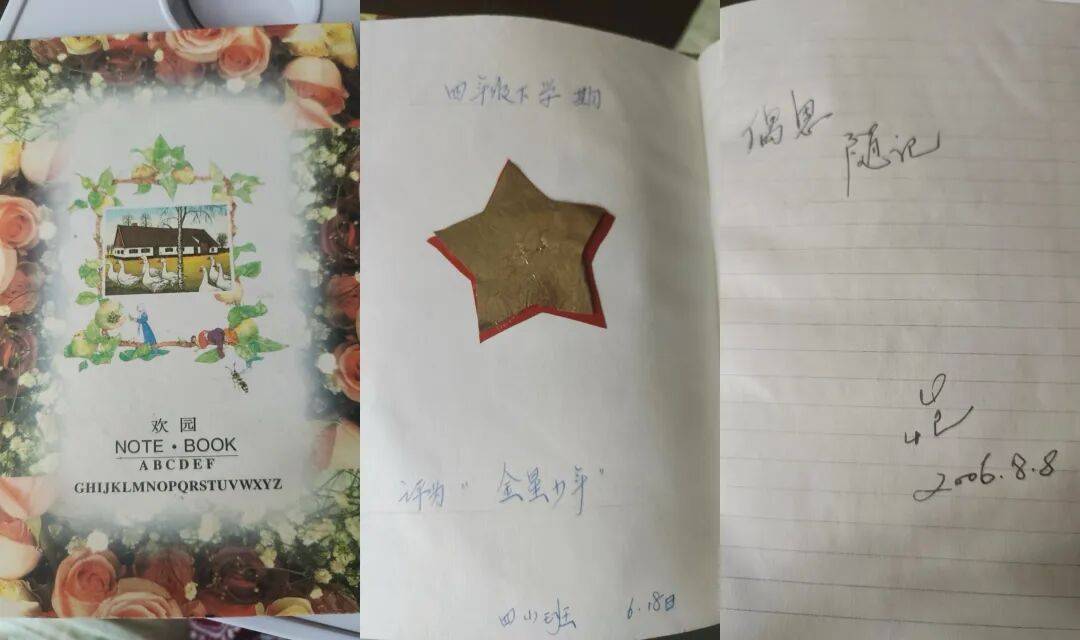 欢 园
NOTE · BOOK
ABCDEF
GHIJKLMNOPQRSTUVWXYZ
四年级下学期
评为“金星少年”
6.18日
偶思
随记
2006.8.8